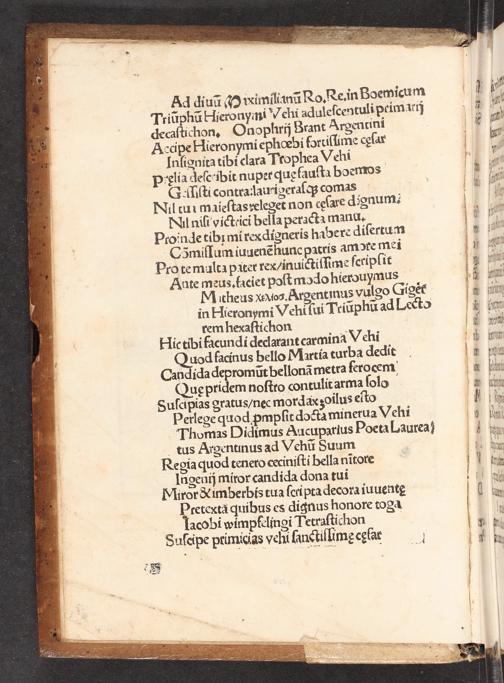 Ad diuū Maximilianū Ro. Re. in Boemicum
Triūphū Hieronymi Vehi adulescentuli peimarij
decastichon. Onophrij Brant Argentini
Accipe Hieronymi ephœbi fortissime cęsar
Insignita tibi clara Trophea Vehi
Pręlia describit nuper quę fausta boemos
Gessisti contra: laurigerasq; comas
Nil tua maiestas releget non cęsare dignum:
Nil nisi victrici bella peracta manu.
Proinde tibi mi rex digneris habere disertum
Cōmissum iuuenē hunc patris amore mei
Pro te multa pater rex/inuictissime scripsit
Ante meus, faciet post modo hieronymus
Matheus Argentinus vulgo Giger
in Hieronymi Vehi sui Triūphū ad Lecto
rem hexastichon
Hic tibi facundi declarant carmina Vehi
Quod facinus bello Martia turba dedit
Candida depromūt bellonā metra ferocem
Que pridem nostro contulit arma solo
Suscipias gratus/nec mordax zoilus esto
Perlege quod prompsit docta minerua Vehi
Thomas Didimus Aucuparius Poeta Laurea/
tus Argentinus ad Vehū Suum
Regia quod tenero cecinisti bella nītore
Ingenij miror candida dona tui
Miror & imberbis tua scripta decora iuuentę
Pretexta quibus es dignus honore toga
Iacobi wimpfelingi Tetrastichon
Suscipe primicias vehi sanctissimę cęsar